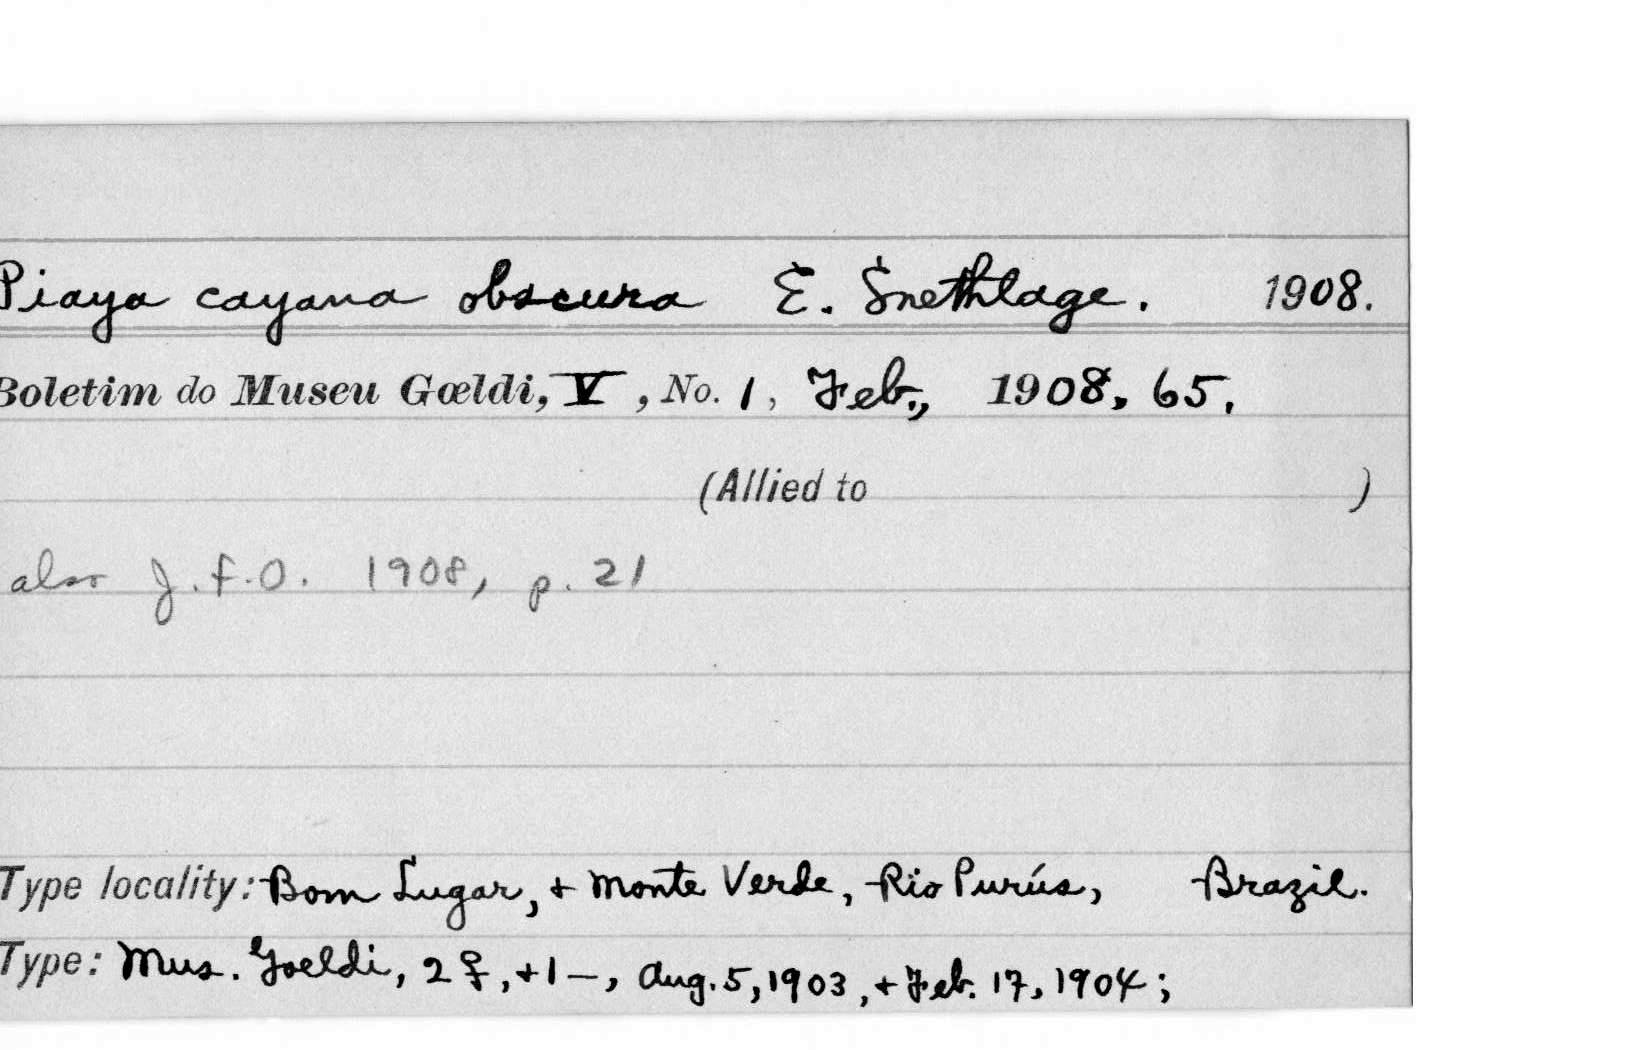 Piaya cayana obscura E. Snethlage. 1908.
Boletim do Museu Gœldi, V, No. 1, Feb., 1908, 65.
(Allied to )
also J.f.O. 1908, p. 21
Type locality: Bom Lugar, + Monte Verde, Rio Purús, Brazil.
Type: Mus. Goeldi, 2 ♀, + 1 —, Aug. 5, 1903, + Feb. 17, 1904;